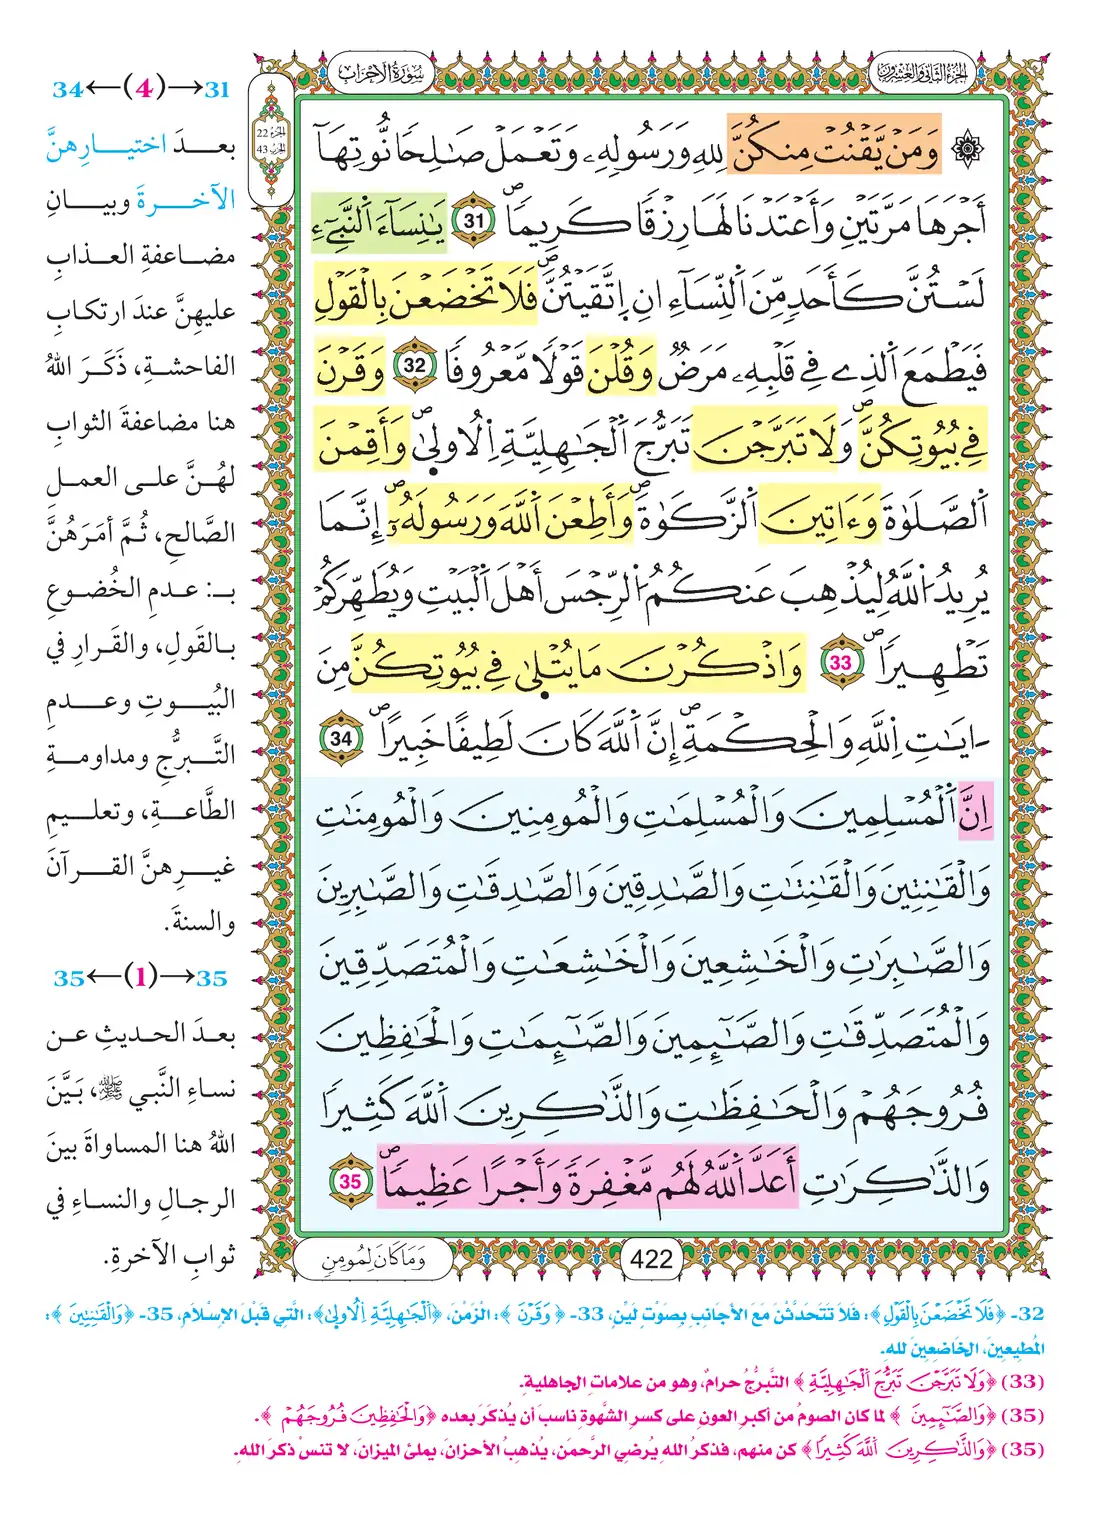 سُورَةُ الأَحْزَابِ
الجُزْءُ الثَّانِي وَالعِشْرُونَ
الجزء 22
الحزب 43
۞ وَمَنْ يَّقْنُتْ مِنكُنَّ لِلهِ وَرَسُولِهِۦ وَتَعْمَلْ صَٰلِحًا نُّوتِهَآ
أَجْرَهَا مَرَّتَيْنِ وَأَعْتَدْنَا لَهَا رِزْقًا كَرِيمًا 31 يَٰنِسَآءَ اَلنَّبِيٓءِ
لَسْتُنَّ كَأَحَدٖ مِّنَ اَلنِّسَآءِ انِ اِتَّقَيْتُنَّ فَلَا تَخْضَعْنَ بِالْقَوْلِ
فَيَطْمَعَ اَلذِے فِے قَلْبِهِۦ مَرَضٞ وَقُلْنَ قَوْلًا مَّعْرُوفًا 32 وَقَرْنَ
فِے بُيُوتِكُنَّ وَلَا تَبَرَّجْنَ تَبَرُّجَ اَلْجَٰهِلِيَّةِ اِلُاولَىٰ وَأَقِمْنَ
اَلصَّلَوٰةَ وَءَاتِينَ اَلزَّكَوٰةَ وَأَطِعْنَ اَللَّهَ وَرَسُولَهُۥٓ إِنَّمَا
يُرِيدُ اُللَّهُ لِيُذْهِبَ عَنكُمُ اُلرِّجْسَ أَهْلَ اَلْبَيْتِ وَيُطَهِّرَكُمْ
تَطْهِيرًا 33 وَاذْكُرْنَ مَا يُتْلَىٰ فِے بُيُوتِكُنَّ مِنَ
ايَٰتِ اِللَّهِ وَالْحِكْمَةِ إِنَّ اَللَّهَ كَانَ لَطِيفًا خَبِيرًا 34
اِنَّ اَلْمُسْلِمِينَ وَالْمُسْلِمَٰتِ وَالْمُومِنِينَ وَالْمُومِنَٰتِ
وَالْقَٰنِتِينَ وَالْقَٰنِتَٰتِ وَالصَّٰدِقِينَ وَالصَّٰدِقَٰتِ وَالصَّٰبِرِينَ
وَالصَّٰبِرَٰتِ وَالْخَٰشِعِينَ وَالْخَٰشِعَٰتِ وَالْمُتَصَدِّقِينَ
وَالْمُتَصَدِّقَٰتِ وَالصَّٰٓئِمِينَ وَالصَّٰٓئِمَٰتِ وَالْحَٰفِظِينَ
فُرُوجَهُمْ وَالْحَٰفِظَٰتِ وَالذَّٰكِرِينَ اَللَّهَ كَثِيرًا
وَالذَّٰكِرَٰتِ أَعَدَّ اَللَّهُ لَهُم مَّغْفِرَةً وَأَجْرًا عَظِيمًا 35
وَمَا كَانَ لِمُومِنٖ
422
31→(4)←34
بعـدَ اختيـارِهنَّ
الآخـرةَ وبيـانِ
مضـاعفةِ العـذابِ
عليهِنَّ عندَ ارتكـابِ
الفاحشـةِ، ذَكَـرَ اللهُ
هنا مضاعفةَ الثوابِ
لهُـنَّ علـى العمـلِ
الصَّالحِ، ثُـمَّ أمرَهُنَّ
بـ: عـدمِ الخُضـوعِ
بـالقَولِ، والقَـرارِ في
البُيُـوتِ وعـدمِ
التَّبـرُّجِ ومداومـةِ
الطَّاعـةِ، وتعلـيمِ
غيـرِهنَّ القـرآنَ
والسنةَ.
35→(1)←35
بعـدَ الحـديثِ عـن
نساءِ النَّبي ﷺ، بَيَّنَ
اللهُ هنا المساواةَ بينَ
الرجـالِ والنساءِ في
ثوابِ الآخرةِ.
32- ﴿فَلَا تَخْضَعْنَ بِالْقَوْلِ﴾: فلَا تَتَحَدَّثْنَ مَعَ الأَجَانِبِ بِصَوْتٍ لَيِّنٍ، 33- ﴿وَقَرْنَ﴾: الْزَمْنَ، ﴿اَلْجَٰهِلِيَّةِ اِلُاولَىٰ﴾: الَّتِي قَبْلَ الإِسْلَامِ، 35- ﴿وَالْقَٰنِتِينَ﴾:
المُطِيعِينَ، الخَاضِعِينَ للهِ.
(33) ﴿وَلَا تَبَرَّجْنَ تَبَرُّجَ اَلْجَٰهِلِيَّةِ﴾ التَّبرُّجُ حرامٌ، وهو من علاماتِ الجاهليةِ.
(35) ﴿وَالصَّٰٓئِمِينَ﴾ لما كان الصومُ من أكبرِ العونِ على كسرِ الشَّهوةِ ناسبَ أن يُذكَرَ بعده ﴿وَالْحَٰفِظِينَ فُرُوجَهُمْ﴾.
(35) ﴿وَالذَّٰكِرِينَ اَللَّهَ كَثِيرًا﴾ كن منهم، فذكرُ اللهِ يُرضي الرَّحمنَ، يُذهبُ الأحزانَ، يملئُ الميزانَ، لا تنسْ ذكرَ اللهِ.